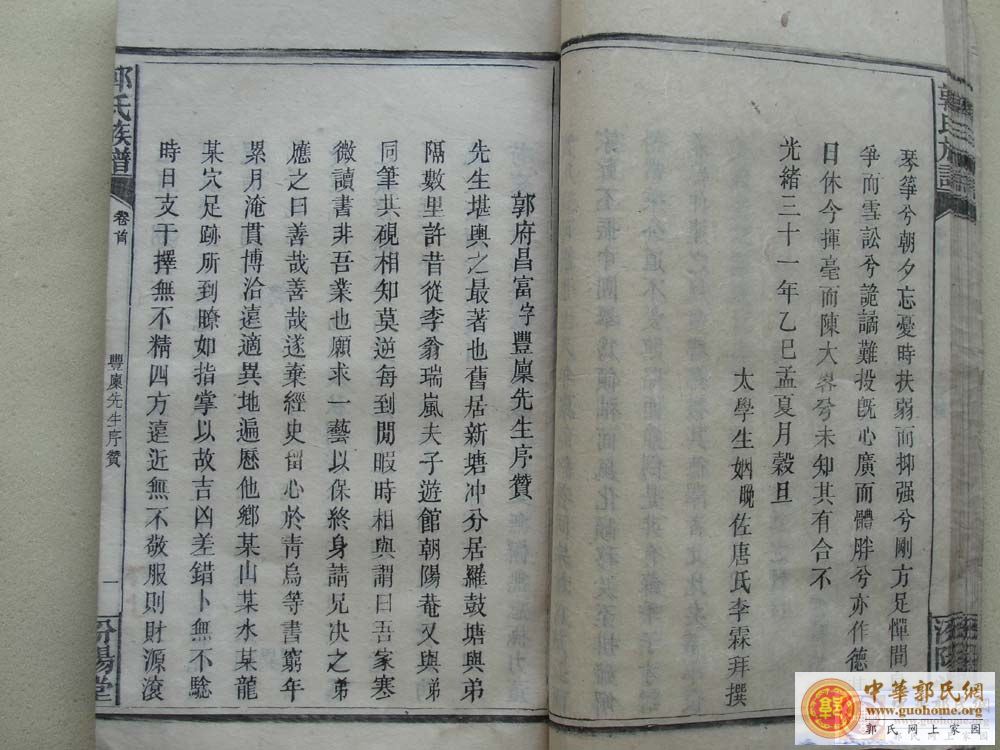 郭氏族譜
琴箏兮朝夕忘憂時扶弱而抑强兮剛方足憚間
爭而雪訟兮詭譎難投既心廣而體胖兮亦作德
日休今揮毫而陳大畧兮未知其有合不
光緒三十一年乙巳孟夏月穀旦
太學生姻晚佐唐氏李霖拜撰
郭府昌富字豐廩先生序贊
先生堪輿之最著也舊居新塘冲分居羅鼓塘與弟
隔數里許昔從李翁瑞嵐夫子遊館朝陽菴又與弟
同筆共硯相知莫逆每到閒暇時相與謂曰吾家寒
微讀書非吾業也願求一藝以保終身請兄决之弟
應之曰善哉善哉遂棄經史留心於靑烏等書窮年
累月淹貫博洽遠適異地遍歷他鄉某山某水某龍
某穴足跡所到瞭如指掌以故吉凶差錯卜無不驗
時日支干擇無不精四方遠近無不敬服則財源滾
郭氏族譜
卷首
豐廩先生序贊
一
汾陽堂
中華郭氏網
www.guohome.org
郭氏网上家园